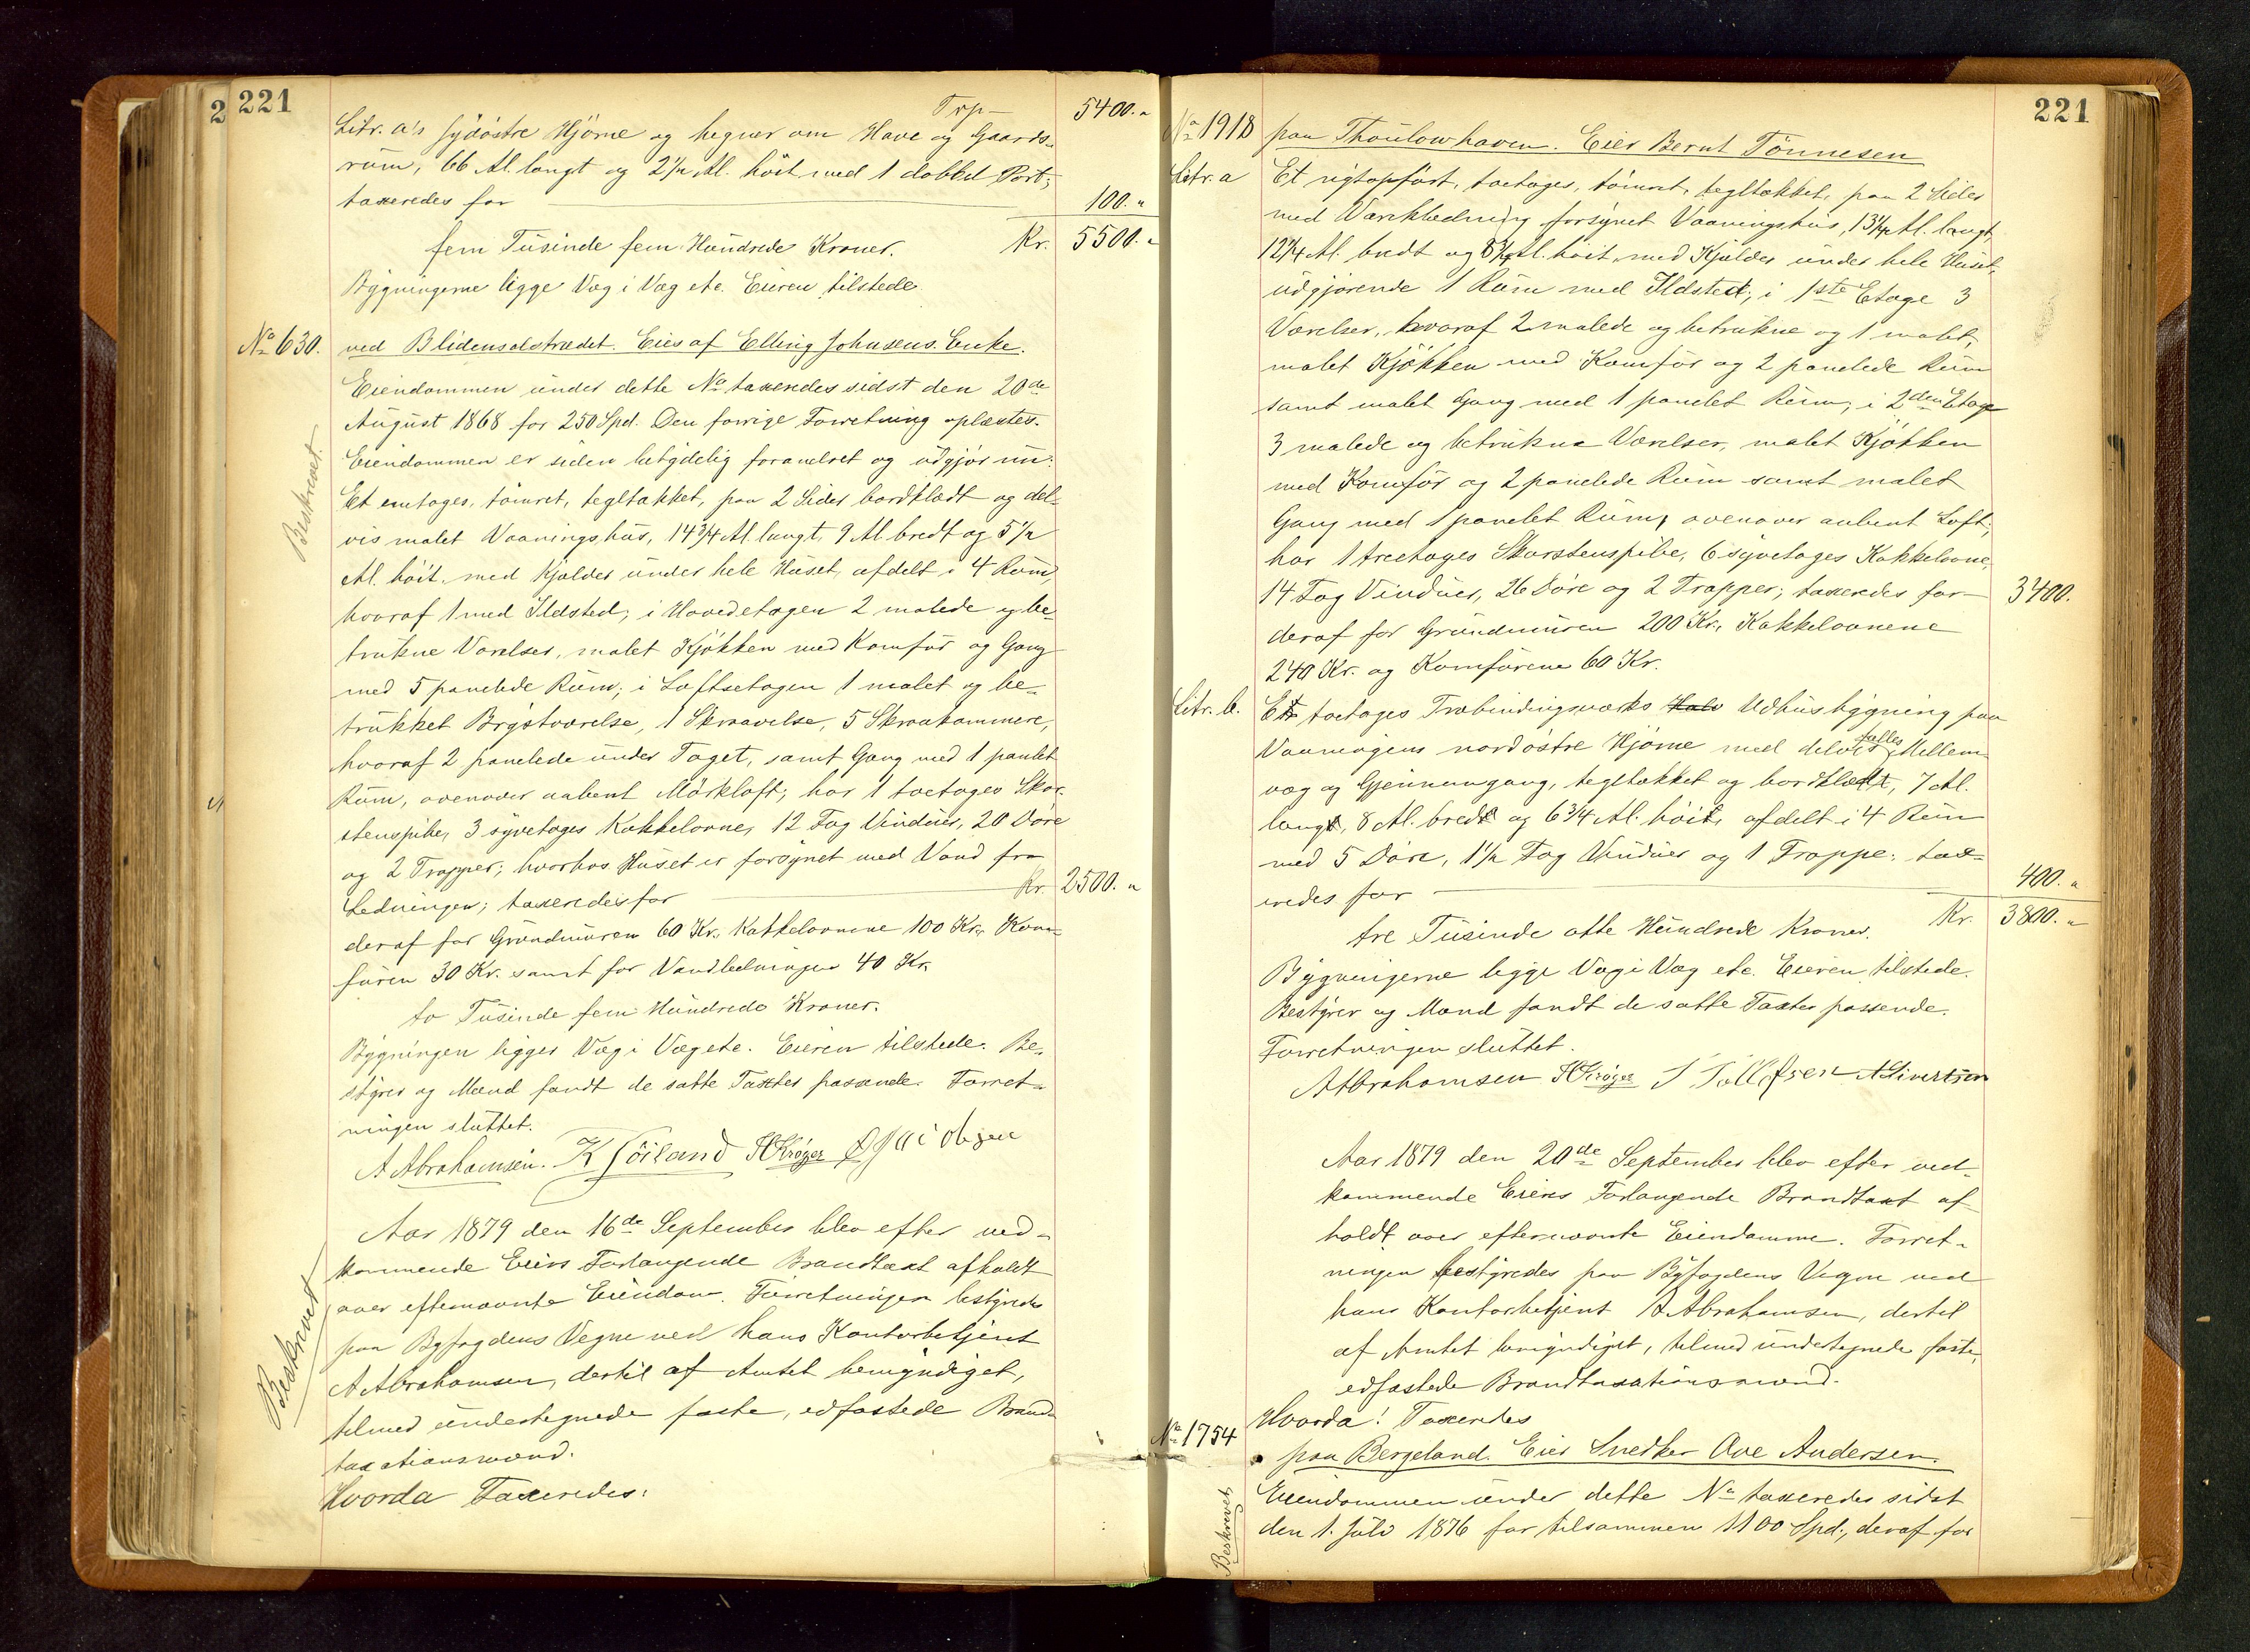 221
Trp— 5400.„
Litr. a's sydöstre Hjörne og hegner om Have og Gaards-
rum, 66 Al. langt og 2½ Al. höit med 1 dobbel Port;
taxeredes for 100.„
fem Tusinde fem Hundrede Kroner. Kr. 5500.„
Bygningerne ligge Væg i Væg etc. Eieren tilstede
No 630. ved Blidensolstrædet. Eies af Elling Johnsens Enke.
Beskrevet.
Eiendommen under dette No taxeredes sidst den 20de
August 1868 for 250 Spd. Den forrige Forretning oplæstes.
Eiendommen er siden betydelig forandret og udgjör nu:
Et enetages, tömret, tegltakket, paa 2 Sider bordklædt og del-
vis malet Vaaningshus, 14¾ Al. langt, 9 Al. bredt og 5½
Al. höit, med Kjælder under hele Huset, afdelt i 4 Rum,
hvoraf 1 med Ildsted; i Hovedetagen 2 malede og be-
trukne Værelser, malet Kjökken med Komfür og Gang
med 5 panelede Rum; i Loftsetagen 1 malet og be-
trukket Brystværelse, 1 Skraavelse, 5 Skraakammere,
hvoraf 2 panelede under Taget, samt Gang med 1 panlet
Rum, ovenover aabent Mörkloft; har 1 toetages Skor-
stenspibe, 3 syvetages Kakkelovne, 12 Fag Vinduer, 20 Döre
og 2 Trapper; hvorhos Huset er forsynet med Vand fra
Ledningen; taxeredes for Kr. 2500.„
deraf for Grundmuren 60 Kr., Kakkelovnene 100 Kr., Kom-
füren 30 Kr. samt for Vandledningen 40 Kr.
to Tusinde fem Hundrede Kroner.
Bygningen ligger Væg i Væg etc. Eieren tilstede. Be-
styrer og Mænd fandt de satte Taxter passende. Forret-
ningen sluttet.
A Abrahamsen. K Soiland H Kröger
Beskrevet
Aar 1879 den 16de September blev efter ved-
kommende Eiers Forlangende Brandtaxt afholdt
over efternævnte Eiendom. Forretningen bestyredes
paa Byfogdens Vegne ved hans Kontorbetjent
A Abrahamsen, dertil af Amtet bemyndiget,
tilmed undertegnede faste, edfæstede Brand-
taxationsmænd.
Hvorda Taxeredes:
221
No 1918 paa Thoulowhaven. Eier Bernt Tönnesen
Litr. a Et nyt opfört, toetages, tömret, tegltækket, paa 2 Sider
med Værnklædning forsynet Vaaningshus, 13¼ Al. langt,
12¼ Al. bredt og 8¼ Al. höit, med Kjælder under hele Huset,
udgjörende 1 Rum med Ildsted; i 1ste Etage 3
Værelser, hvoraf 2 malede og betrukne og 1 malet,
malet Kjökken med Komfür og 2 panelede Rum
samt malet Gang med 1 panelet Rum; i 2den Etage
3 malede og betrukne Værelser, malet Kjökken
med Komfür og 2 panelede Rum samt malet
Gang med 1 panelet Rum, ovenover aabent Loft;
har 1 treetages Skorstenspibe, 6 syvetages Kakkelovne,
14 Fag Vinduer, 26 Döre og 2 Trapper; taxeredes for— 3400.
deraf for Grundmuren 200 Kr., Kakkelovnene
240 Kr. og Komfürene 60 Kr.
Litr. b. Et toetages Træbindingsværks Halv Udhusbygning paa
Vaaningens nordöstre Hjörne med delvis fælles Mellem-
væg og Gjennemgang, tegltækket og bordklædt, 7 Al.
langt, 8 Al. bredt og 6¾ Al. höit, afdelt i 4 Rum
med 5 Döre, 1½ Fag Vinduer og 1 Trappe; taxe-
redes for 400.„
tre Tusinde otte Hundrede Kroner. Kr. 3800.„
Bygningerne ligge Væg i Væg etc. Eieren tilstede.
Bestyrer og Mænd fandt de satte Taxter passende.
Forretningen sluttet.
A Abrahamsen H Kröger T Tollefsen A Sivertsen
Aar 1879 den 20de September blev efter ved-
kommende Eieres Forlangende Brandtaxt af-
holdt over efternævnte Eiendomme. Forret-
ningen bestyredes paa Byfogdens Vegne ved
hans Kontorbetjent A Abrahamsen, dertil
af Amtet bemyndiget, tilmed undertegnede faste,
edfæstede Brandtaxationsmænd.
Hvorda! Taxeredes
No 1754 paa Bergeland. Eier Snedker Ove Andersen.
Beskrevet
Eiendommen under dette No taxeredes sidst
den 1. Juli 1876 for tilsammen 1100 Spd., deraf for